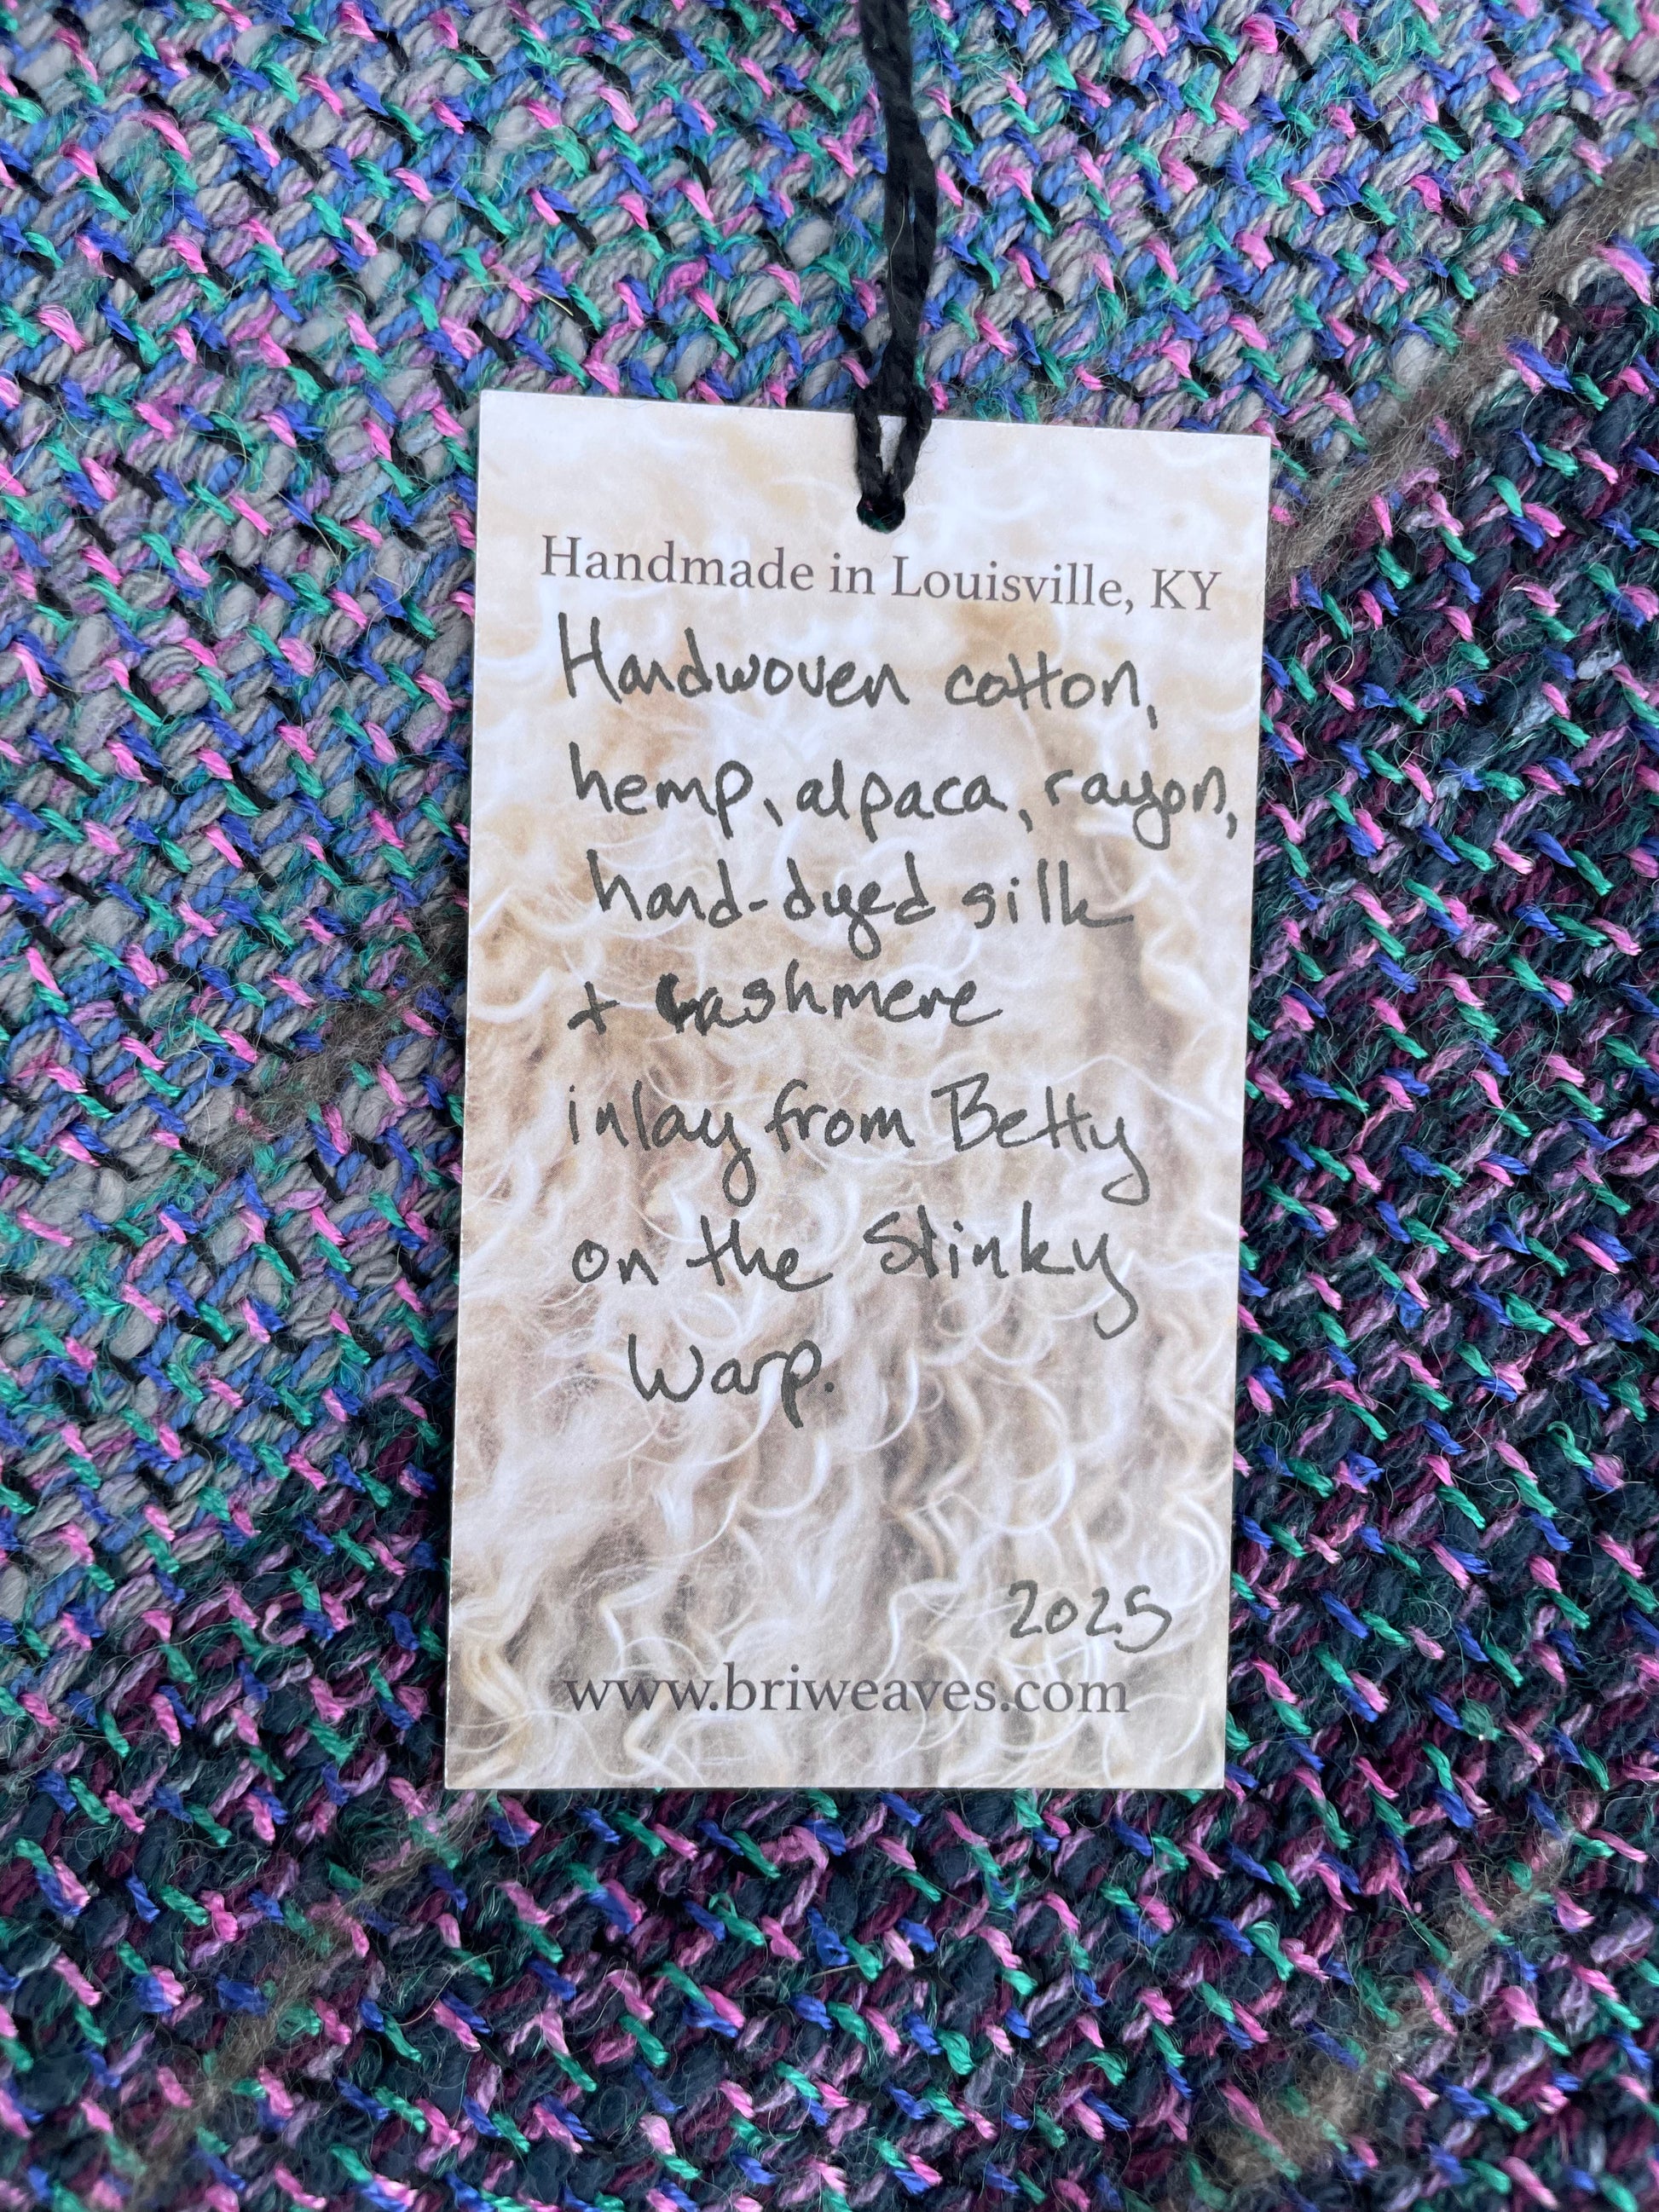 Handmade in Louisville, KY
Handwoven cotton,
hemp, alpaca, rayon,
hand-dyed silk
+ Cashmere
inlay from Betty
on the Slinky
Warp.
2025
www.briweaves.com